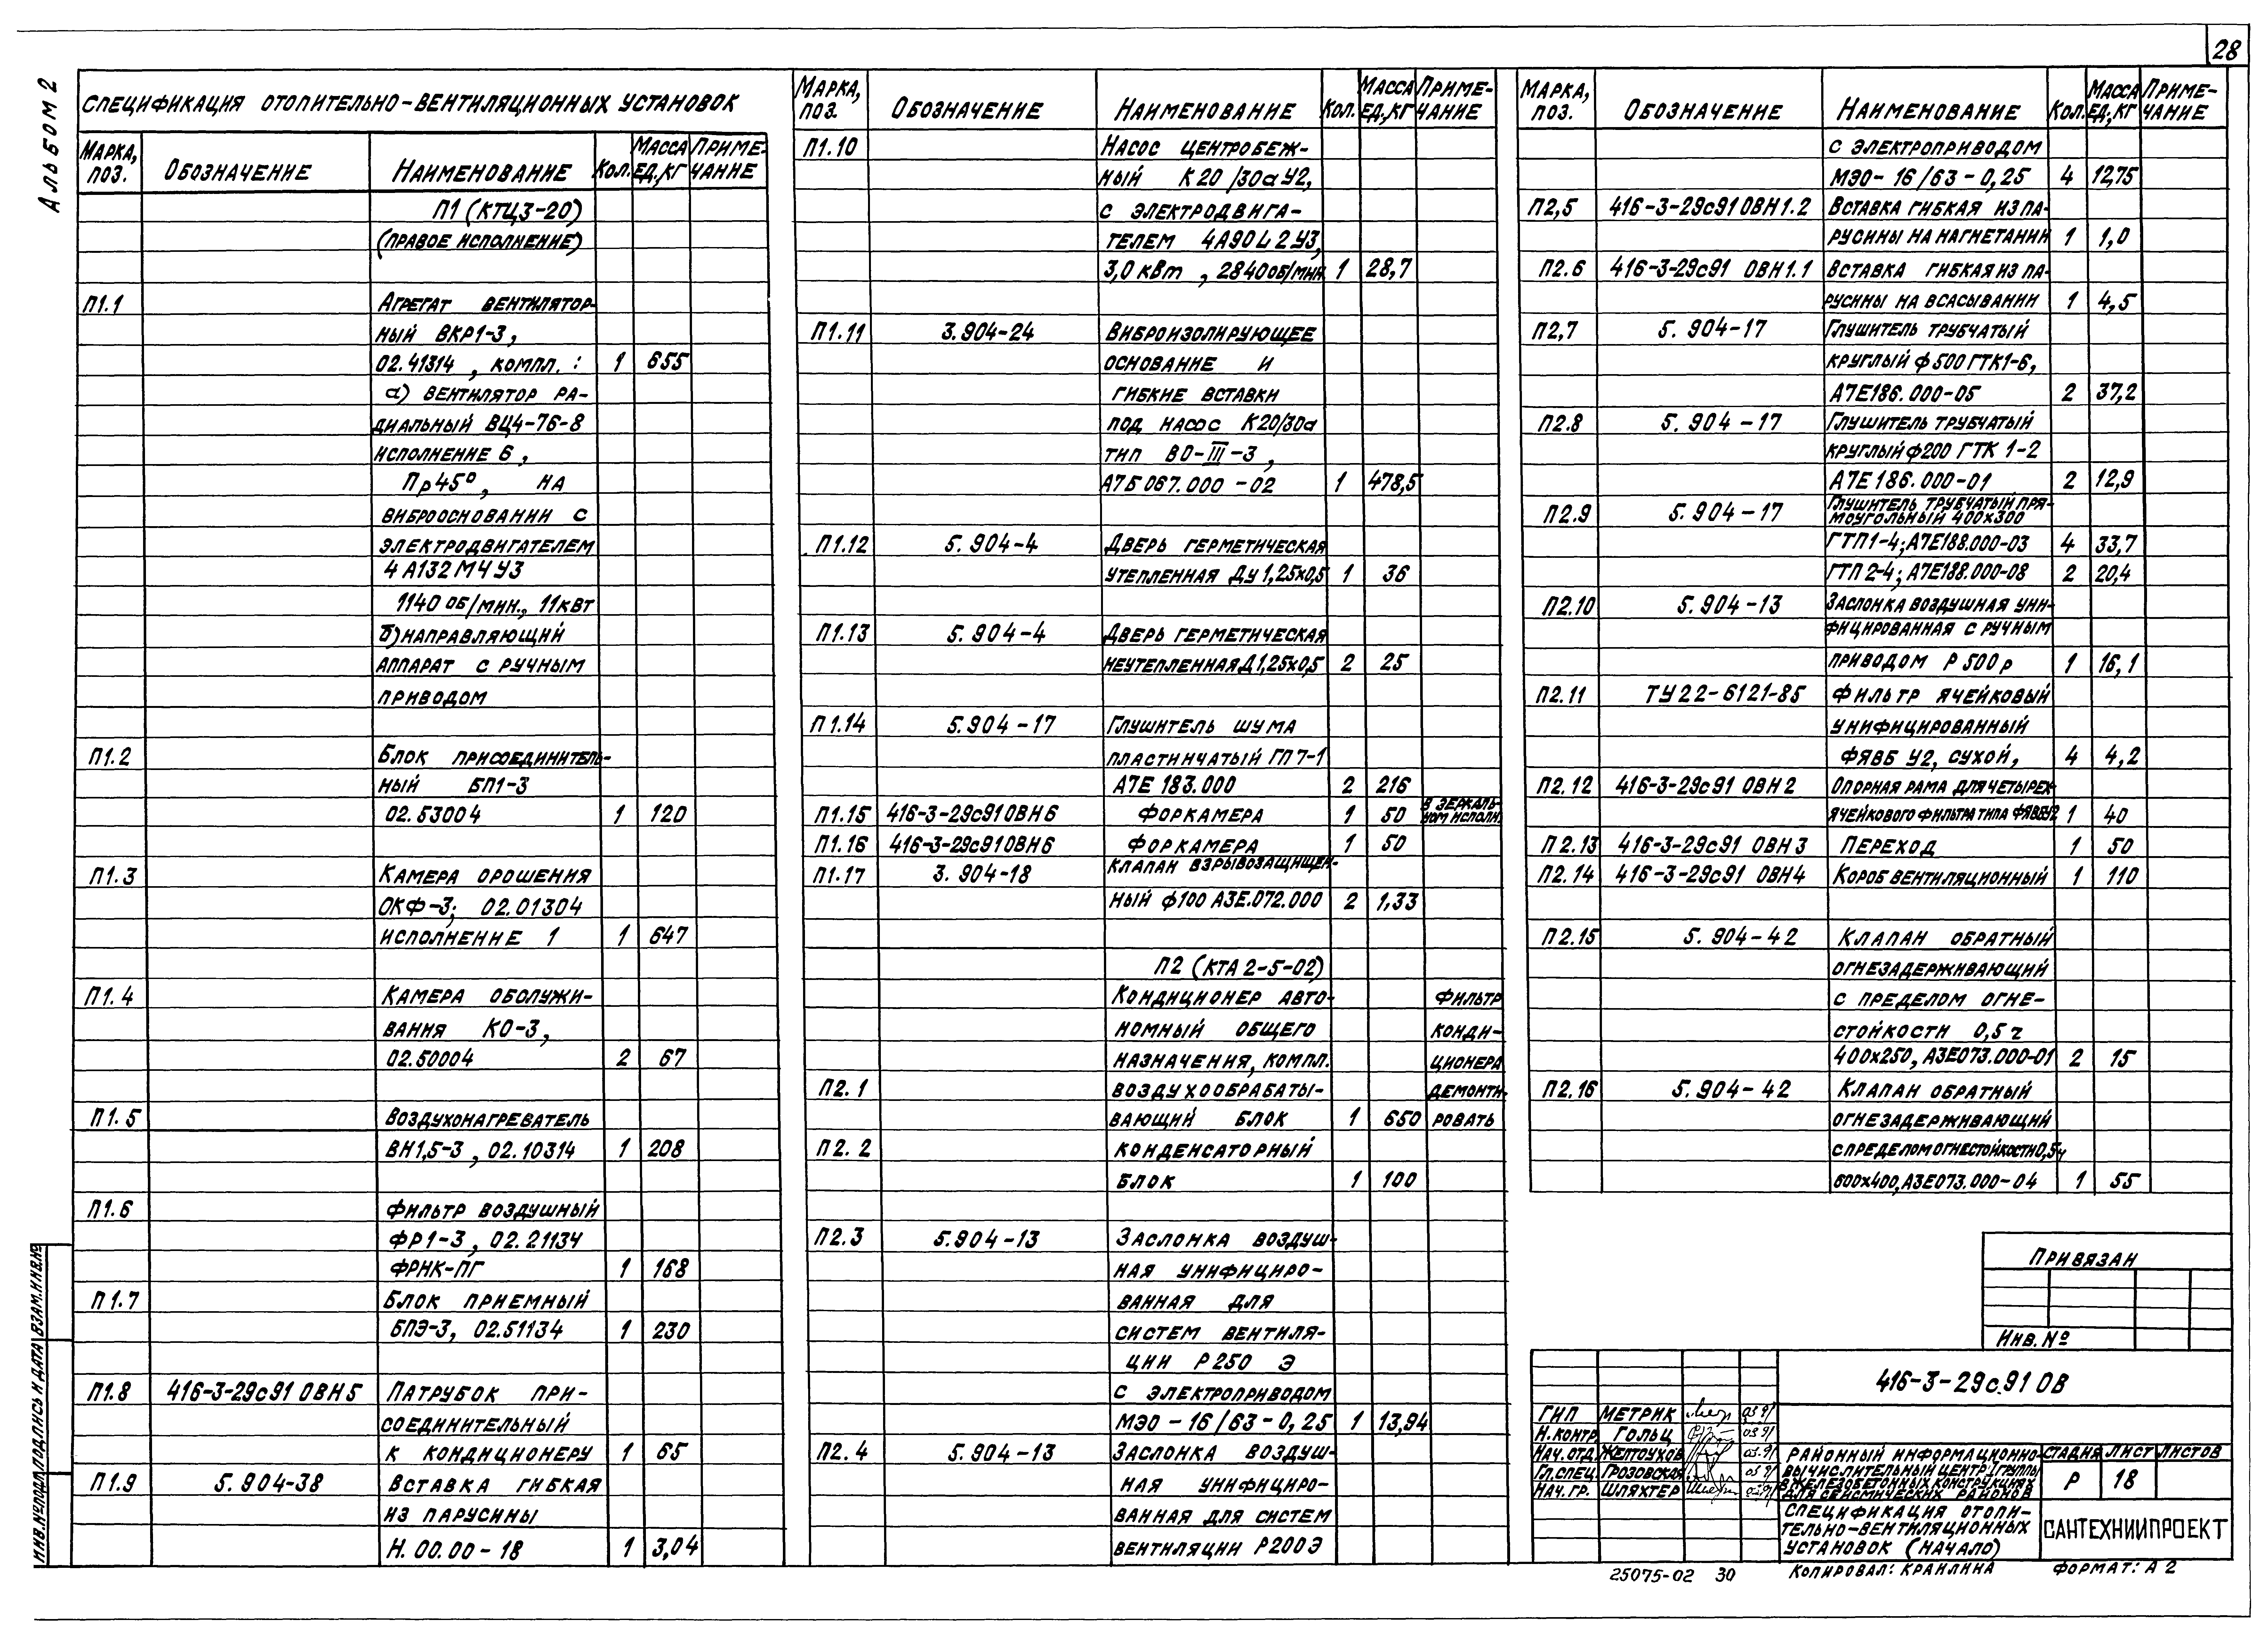 28
Альбом 2
Спецификация отопительно-вентиляционных установок
Марка, поз. Обозначение Наименование Кол. Масса ед., кг Примечание
П1 (КТЦ3-20)
(правое исполнение)
П1.1 Агрегат вентилятор-
ный ВКР1-3,
02.41314, компл.: 1 655
а) вентилятор ра-
диальный ВЦ4-76-8
исполнение 6,
Пр45°, на
виброосновании с
электродвигателем
4А132М4У3
1140 об/мин., 11кВт
б) направляющий
аппарат с ручным
приводом
П1.2 Блок присоединитель-
ный БП1-3
02.53004 1 120
П1.3 Камера орошения
ОКФ-3; 02.01304
исполнение 1 1 647
П1.4 Камера обслужи-
вания КО-3,
02.50004 2 67
П1.5 Воздухонагреватель
ВН1,5-3, 02.10314 1 208
П1.6 Фильтр воздушный
ФР1-3, 02.21134
ФРНК-ПГ 1 168
П1.7 Блок приемный
БПЭ-3, 02.51134 1 230
П1.8 416-3-29с91 ОВН5 Патрубок при-
соединительный
к кондиционеру 1 65
П1.9 5.904-38 Вставка гибкая
из парусины
Н.00.00-18 1 3,04
Марка, поз. Обозначение Наименование Кол. Масса ед., кг Примечание
П1.10 Насос центробеж-
ный К20/30аУ2,
с электродвига-
телем 4А90L2У3,
3,0 кВт, 2840об/мин 1 28,7
П1.11 3.904-24 Виброизолирующее
основание и
гибкие вставки
под насос К20/30а
тип ВО-III-3,
А7Б067.000-02 1 478,5
П1.12 5.904-4 Дверь герметическая
утепленная Ду 1,25х0,5 1 36
П1.13 5.904-4 Дверь герметическая
неутепленная Д1,25х0,5 2 25
П1.14 5.904-17 Глушитель шума
пластинчатый ГП7-1
А7Е 183.000 2 216
П1.15 416-3-29с91ОВН6 Форкамера 1 50 в зеркаль-
ном исполн.
П1.16 416-3-29с91ОВН6 Форкамера 1 50
П1.17 3.904-18 Клапан взрывозащищен-
ный ф100 А3Е.072.000 2 1,33
П2 (КТА 2-5-02)
Кондиционер авто- фильтр
номный общего конди-
назначения, компл. ционера
П2.1 воздухообрабаты- демонти-
вающий блок 1 650 ровать
П2.2 конденсаторный
блок 1 100
П2.3 5.904-13 Заслонка воздуш-
ная унифициро-
ванная для
систем вентиля-
ции Р250 Э
с электроприводом
МЭО-16/63-0,25 1 13,94
П2.4 5.904-13 Заслонка воздуш-
ная унифициро-
ванная для систем
вентиляции Р200Э
Марка, поз. Обозначение Наименование Кол. Масса ед., кг Примечание
с электроприводом
МЭО-16/63-0,25 4 12,75
П2,5 416-3-29с91 ОВН1.2 Вставка гибкая из па-
русины на нагнетании 1 1,0
П2.6 416-3-29с91 ОВН1.1 Вставка гибкая из па-
русины на всасывании 1 4,5
П2,7 5.904-17 Глушитель трубчатый
круглый ф500 ГТК1-6,
А7Е186.000-05 2 37,2
П2.8 5.904-17 Глушитель трубчатый
круглый ф200 ГТК 1-2
А7Е186.000-01 2 12,9
П2.9 5.904-17 Глушитель трубчатый пря-
моугольный 400х300
ГТП1-4; А7Е188.000-03 4 33,7
ГТП 2-4; А7Е188.000-08 2 20,4
П2.10 5.904-13 Заслонка воздушная уни-
фицированная с ручным
приводом Р500р 1 16,1
П2.11 ТУ22-6121-85 Фильтр ячейковый
унифицированный
ФЯВБ У2, сухой, 4 4,2
П2.12 416-3-29с91 ОВН2 Опорная рама для четырех-
ячейкового фильтра типа ФЯВБУ2 1 40
П2.13 416-3-29с91 ОВН3 Переход 1 50
П2.14 416-3-29с91 ОВН4 Короб вентиляционный 1 110
П2.15 5.904-42 Клапан обратный
огнезадерживающий
с пределом огне-
стойкости 0,5 ч
400х250, А3Е073.000-01 2 15
П2.16 5.904-42 Клапан обратный
огнезадерживающий
с пределом огнестойкости 0,5ч
600х400, А3Е073.000-04 1 55
Привязан
Инв. №
416-3-29с.91 ОВ
ГИП Метрик 03.91
Н.контр Гольц 03.91
Нач.отд. Желтоухов 03.91
Гл.спец. Грозовская 03.91
Нач.гр. Шляхтер 03.91
Районный информационно-
вычислительный центр, группы
в железобетонных конструкциях
для сейсмических районов
Стадия Лист Листов
Р 18
Спецификация отопи-
тельно-вентиляционных
установок (начало)
САНТЕХНИИПРОЕКТ
25075-02 30
Копировал: Краилина
Формат: А2
Инв.№подл. Подпись и дата Взам.инв.№